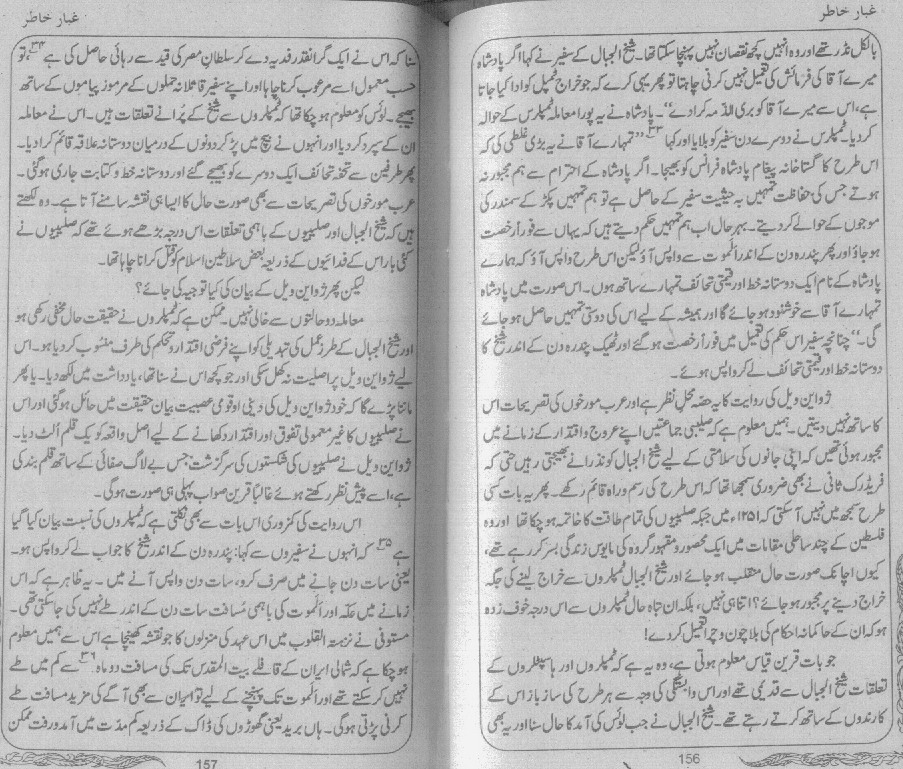 غبار خاطر
بالکل نڈر تھے اور وہ انہیں کچھ نقصان نہیں پہنچا سکتا تھا۔ شیخ الجبال کے سفیر نے کہا اگر پادشاہ
میرے آقا کی فرمائش کی تعمیل نہیں کرنی چاہتا تو پھر یہی کرے کہ جو خراج ٹمپل کو ادا کیا جاتا
ہے، اس سے میرے آقا کو بری الذمہ کرا دے“۔ پادشاہ نے یہ پورا معاملہ ٹمپلرس کے حوالہ
کر دیا۔ ٹمپلرس نے دوسرے دن سفیر کو بلایا اور کہا ۳۳؎ ”تمہارے آقا نے یہ بڑی غلطی کی کہ
اس طرح کا گستاخانہ پیغام پادشاہ فرانس کو بھیجا۔ اگر پادشاہ کے احترام سے ہم مجبور نہ
ہوتے جس کی حفاظت تمہیں بہ حیثیت سفیر کے حاصل ہے تو ہم تمہیں پکڑ کے سمندر کی
موجوں کے حوالے کر دیتے۔ بہر حال اب ہم تمہیں حکم دیتے ہیں کہ یہاں سے فوراً رخصت
ہو جاؤ اور پھر پندرہ دن کے اندر اَلموت سے واپس آؤ لیکن اس طرح واپس آؤ کہ ہمارے
پادشاہ کے نام ایک دوستانہ خط اور قیمتی تحائف تمہارے ساتھ ہوں۔ اس صورت میں پادشاہ
تمہارے آقا سے خوشنود ہو جائے گا اور ہمیشہ کے لیے اس کی دوستی تمہیں حاصل ہو جائے
گی۔“ چنانچہ سفیر اس حکم کی تعمیل میں فوراً رخصت ہو گئے اور ٹھیک پندرہ دن کے اندر شیخ کا
دوستانہ خط اور قیمتی تحائف لے کر واپس ہوئے۔
ژواین ویل کی روایت کا یہ حصہ محلِ نظر ہے اور عرب مورخوں کی تصریحات اس
کا ساتھ نہیں دیتیں۔ ہمیں معلوم ہے کہ صلیبی جماعتیں اپنے عروج و اقتدار کے زمانے میں
مجبور ہوئی تھیں کہ اپنی جانوں کی سلامتی کے لیے شیخ الجبال کو نذرانے بھیجتی رہیں حتی کہ
فریڈرک ثانی نے بھی ضروری سمجھا تھا کہ اس طرح کی رسم و راہ قائم رکھے۔ پھر یہ بات کسی
طرح سمجھ میں نہیں آ سکتی کہ ۱۲۵۱ء میں جبکہ صلیبیوں کی تمام طاقت کا خاتمہ ہو چکا تھا اور وہ
فلسطین کے چند ساحلی مقامات میں ایک محصور و مقہور گروہ کی مایوس زندگی بسر کر رہے تھے،
کیوں اچانک صورت حال منقلب ہو جائے اور شیخ الجبال ٹمپلروں سے خراج لینے کی جگہ
خراج دینے پر مجبور ہو جائے؟ اتنا ہی نہیں، بلکہ ان تباہ حال ٹمپلروں سے اس درجہ خوف زدہ
ہو کہ ان کے حاکمانہ احکام کی بلا چون و چرا تعمیل کر دے!
جو بات قرین قیاس معلوم ہوتی ہے، وہ یہ ہے کہ ٹمپلروں اور ہاسپٹلروں کے
تعلقات شیخ الجبال سے قدیمی تھے اور اس وابستگی کی وجہ سے ہر طرح کی ساز باز اس کے
کارندوں کے ساتھ کرتے رہتے تھے۔ شیخ الجبال نے جب لوئس کی آمد کا حال سنا اور یہ بھی
156
غبار خاطر
سنا کہ اس نے ایک گرانقدر فدیہ دے کر سلطانِ مصر کی قید سے رہائی حاصل کی ہے ۳۴؎، تو
حسب معمول اسے مرعوب کرنا چاہا اور اپنے سفیر قاتلانہ حملوں کے مرموز پیاموں کے ساتھ
بھیجے۔ لوئس کو معلوم ہو چکا تھا کہ ٹمپلروں سے شیخ کے پرانے تعلقات ہیں۔ اس نے معاملہ
ان کے سپرد کر دیا اور انہوں نے بیچ میں پڑ کر دونوں کے درمیان دوستانہ علاقہ قائم کرا دیا۔
پھر طرفین سے تحفہ تحائف ایک دوسرے کو بھیجے گئے اور دوستانہ خط و کتابت جاری ہو گئی۔
عرب مورخوں کی تصریحات سے بھی صورت حال کا ایسا ہی نقشہ سامنے آتا ہے۔ وہ لکھتے
ہیں کہ شیخ الجبال اور صلیبیوں کے باہمی تعلقات اس درجہ بڑھے ہوئے تھے کہ صلیبیوں نے
کئی بار اس کے فدائیوں کے ذریعہ بعض سلاطین اسلام کو قتل کرانا چاہا تھا۔
لیکن پھر ژواین ویل کے بیان کی کیا توجیہ کی جائے؟
معاملہ دو حالتوں سے خالی نہیں۔ ممکن ہے کہ ٹمپلروں نے حقیقت حال مخفی رکھی ہو
اور شیخ الجبال کے طرزِ عمل کی تبدیلی کو اپنے فرضی اقتدار و تحکم کی طرف منسوب کر دیا ہو۔ اس
لیے ژواین ویل پر اصلیت نہ کھل سکی اور جو کچھ اس نے سنا تھا، یادداشت میں لکھ دیا۔ یا پھر
ماننا پڑے گا کہ خود ژواین ویل کی دینی اور قومی عصبیت بیان حقیقت میں حائل ہو گئی اور اس
نے صلیبیوں کا غیر معمولی تفوق اور اقتدار دکھانے کے لیے اصل واقعہ کو یک قلم اُلٹ دیا۔
ژواین ویل نے صلیبیوں کی شکستوں کی سرگزشت جس بے لاگ صفائی کے ساتھ قلم بند کی
ہے، اسے پیش نظر رکھتے ہوئے غالباً قرین صواب پہلی ہی صورت ہو گی۔
اس روایت کی کمزوری اس بات سے بھی نکلتی ہے کہ ٹمپلروں کی نسبت بیان کیا گیا
ہے ۳۵؎ کہ انہوں نے سفیروں سے کہا: پندرہ دن کے اندر شیخ کا جواب لے کر واپس ہو۔
یعنی سات دن جانے میں صرف کرو، سات دن واپس آنے میں۔ یہ ظاہر ہے کہ اس
زمانے میں عکّہ اور اَلموت کی باہمی مُسافت سات دن کے اندر طے نہیں کی جا سکتی تھی۔
مستوفی نے نزہتہ القلوب میں اس عہد کی منزلوں کا جو نقشہ کھینچا ہے اس سے ہمیں معلوم
ہو چکا ہے کہ شمالی ایران کے قافلے بیت المقدس تک کی مسافت دو ماہ ۳۶؎ سے کم میں طے
نہیں کر سکتے تھے اور اَلموت تک پہنچنے کے لیے تو ایران سے بھی آگے کی مزید مسافت طے
کرنی پڑتی ہو گی۔ ہاں برید یعنی گھوڑوں کی ڈاک کے ذریعہ کم مدّت میں آمد و رفت ممکن
157